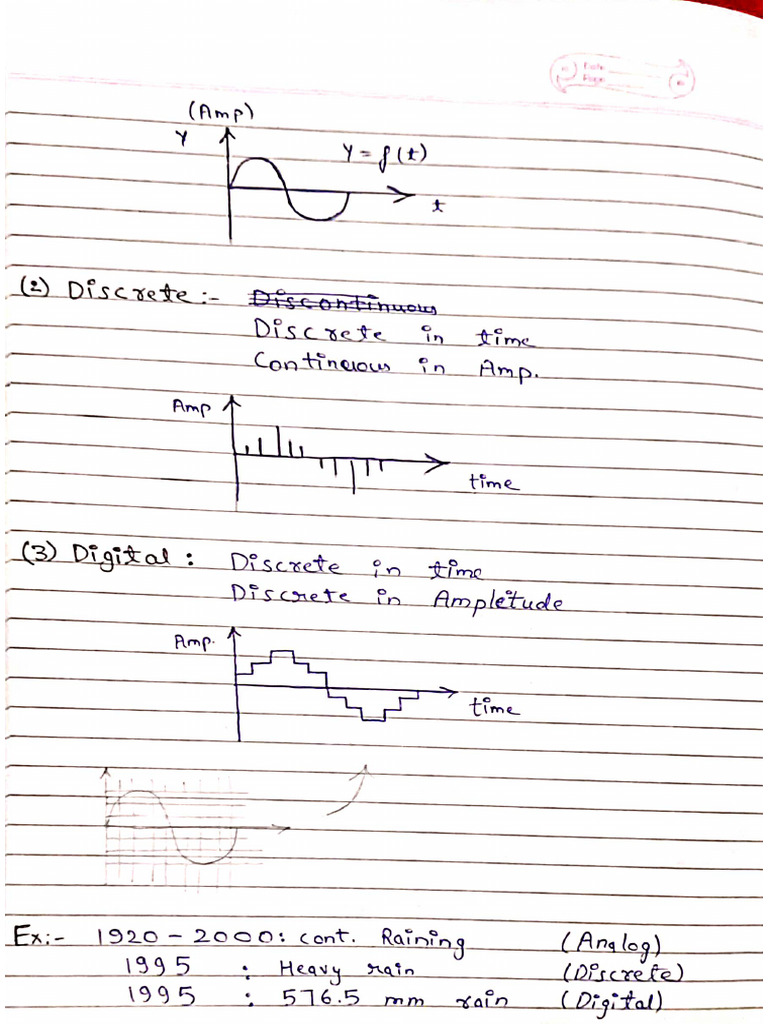 (Amp)
Y
Y = f(t)
t
(2) Discrete :- Discontinuous
Discrete in time
Continuous in Amp.
Amp
time
(3) Digital : Discrete in time
Discrete in Ampletude
Amp.
time
Ex:- 1920 - 2000: cont. Raining (Analog)
1995 : Heavy rain (Discrete)
1995 : 576.5 mm rain (Digital)